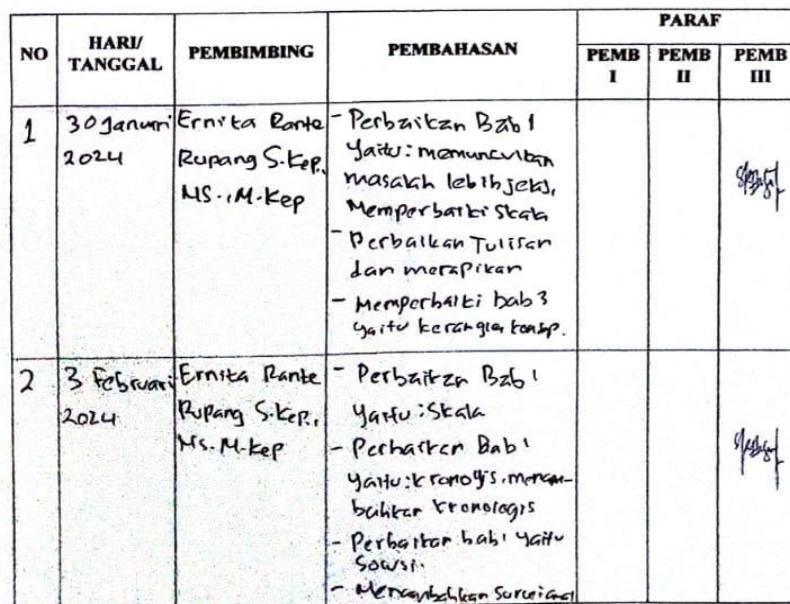 NO
HARI/
TANGGAL
PEMBIMBING
PEMBAHASAN
PARAF
PEMB
I
PEMB
II
PEMB
III
1
30 Januari
2024
Ernita Rante
Rupang S.Kep.,
NS., M.Kep
- Perbaikan Bab 1
yaitu: memunculkan
masalah lebih jelas,
Memperbaiki Skala
- Perbaikan Tulisan
dan merapikan
- Memperbaiki bab 3
yaitu kerangka konsp.
2
3 Februari
2024
Ernita Rante
Rupang S.Kep.,
Ns. M.Kep
- Perbaikan Bab 1
yaitu: Skala
- Perbaikan Bab 1
yaitu: kronologis, menam-
bahkan kronologis
- Perbaikan bab 1 yaitu
Solusi.
- Menambahkan